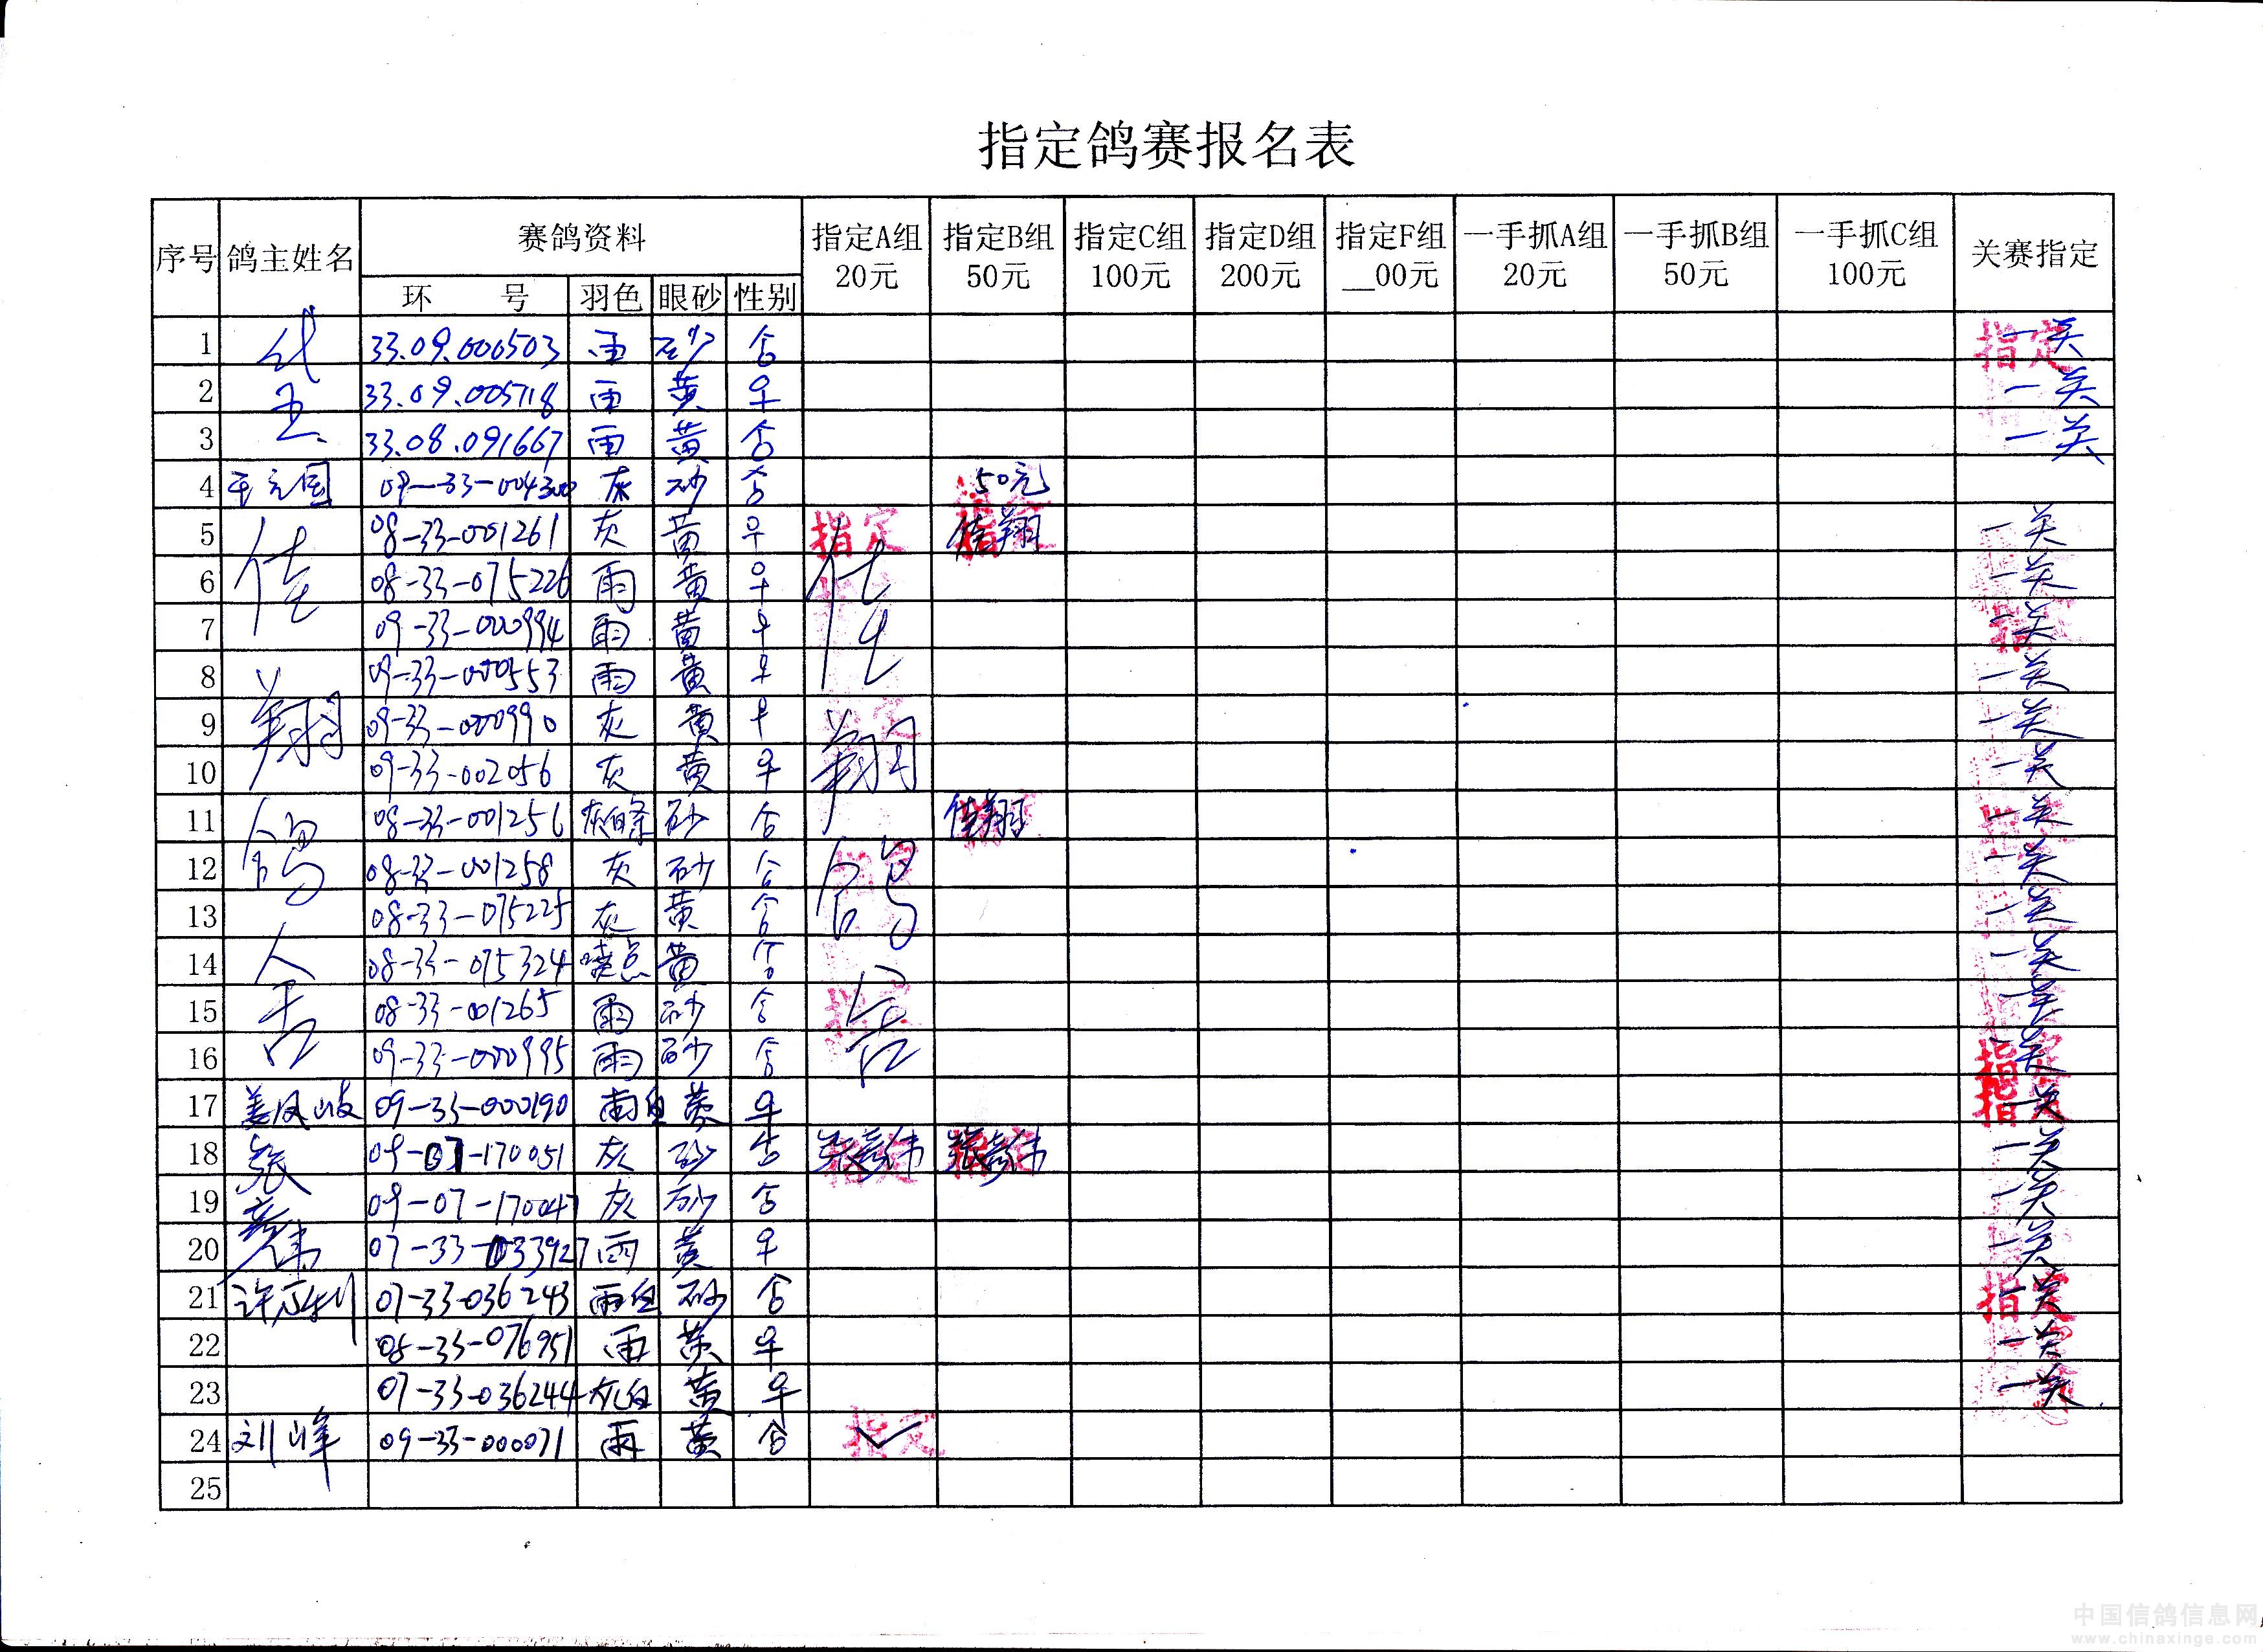 指定鸽赛报名表
序号 鸽主姓名 赛鸽资料 指定A组 指定B组 指定C组 指定D组 指定F组 一手抓A组 一手抓B组 一手抓C组 关赛指定
20元 50元 100元 200元 __00元 20元 50元 100元
环 号 羽色 眼砂 性别
1 33.09.000503 雨 砂 一关 指定
2 33.09.005718 雨 黄 一关
3 33.08.091667 雨 黄 一关
4 09-33-004300 灰 砂 50元
5 08-33-001261 灰 黄 指定 佳翔 一关
6 佳 08-33-075226 雨 黄 佳 一关
7 09-33-000994 雨 黄 一关
8 09-33-000553 雨 黄 一关
9 翔 09-33-000990 灰 黄 翔 一关
10 09-33-002056 灰 黄 一关
11 08-33-001256 灰白条 砂 佳翔 一关
12 鸽 08-33-001258 灰 砂 鸽 一关
13 08-33-075225 灰 黄 一关
14 08-33-075324 黄 一关
15 舍 08-33-001265 雨 砂 舍 一关
16 09-33-000995 雨 砂 一关 指定
17 姜凤岐 09-33-000190 雨白 黄 一关 指定
18 张彦伟 09-07-170051 灰 砂 张彦伟 张彦伟 一关
19 09-07-170047 灰 砂 一关
20 07-33-033927 雨 黄 一关
21 07-33-036243 雨白 砂 一关 指定
22 08-33-076951 雨 黄 一关
23 07-33-036244 灰白 黄 一关
24 刘峰 09-33-000071 雨 黄 指定
25
中国信鸽信息网
www.chinaxinge.com